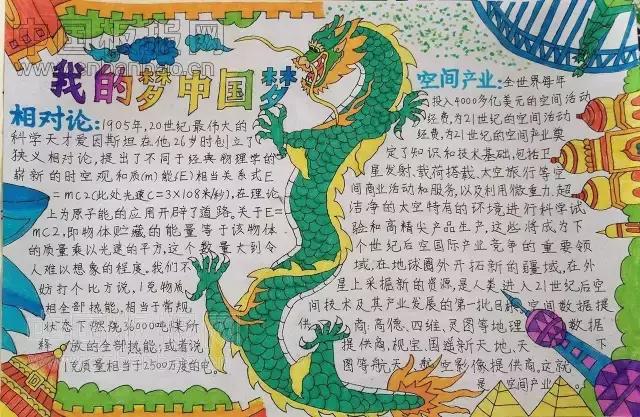 中国板报网
我的梦中国梦
相对论：1905年，20世纪最伟大的
科学天才爱因斯坦在他26岁时创立了
狭义相对论，提出了不同于经典物理学的
崭新的时空观和质(m)能(E)相当关系式E
=mC2(此处光速C=3×108米/秒)，在理论
上为原子能的应用开辟了道路。关于E=
mC2，即物体贮藏的能量等于该物体
的质量乘以光速的平方，这个数量大到令
人难以想象的程度。我们不
妨打个比方说，1克物质
相全部热能，相当于常规
状态下燃烧36000吨煤所
释放的全部热能；或者说
1克质量相当于2500万度的电
空间产业：全世界每年
投入4000多亿美元的空间活动
经费，为21世纪的空间活动
经费，为21世纪的空间产业奠
定了知识和技术基础，包括卫
星发射、载荷搭载、太空旅行等空
间商业活动和服务，以及利用微重力、超
洁净的太空特有的环境进行科学试
验和高精尖产品生产，这些将成为下
个世纪后空国际产业竞争的重要领
域，在地球圈外开拓新的疆域，在外
星上采掘新的资源，是人类进入21世纪后空
间技术及其产业发展的第一批目标 空间数据提
供商：高德、四维、灵图等地理 数据
提供商，视宝、国遥新天地、天下
图等航天 航空影像提供商，这就
是 空间产业